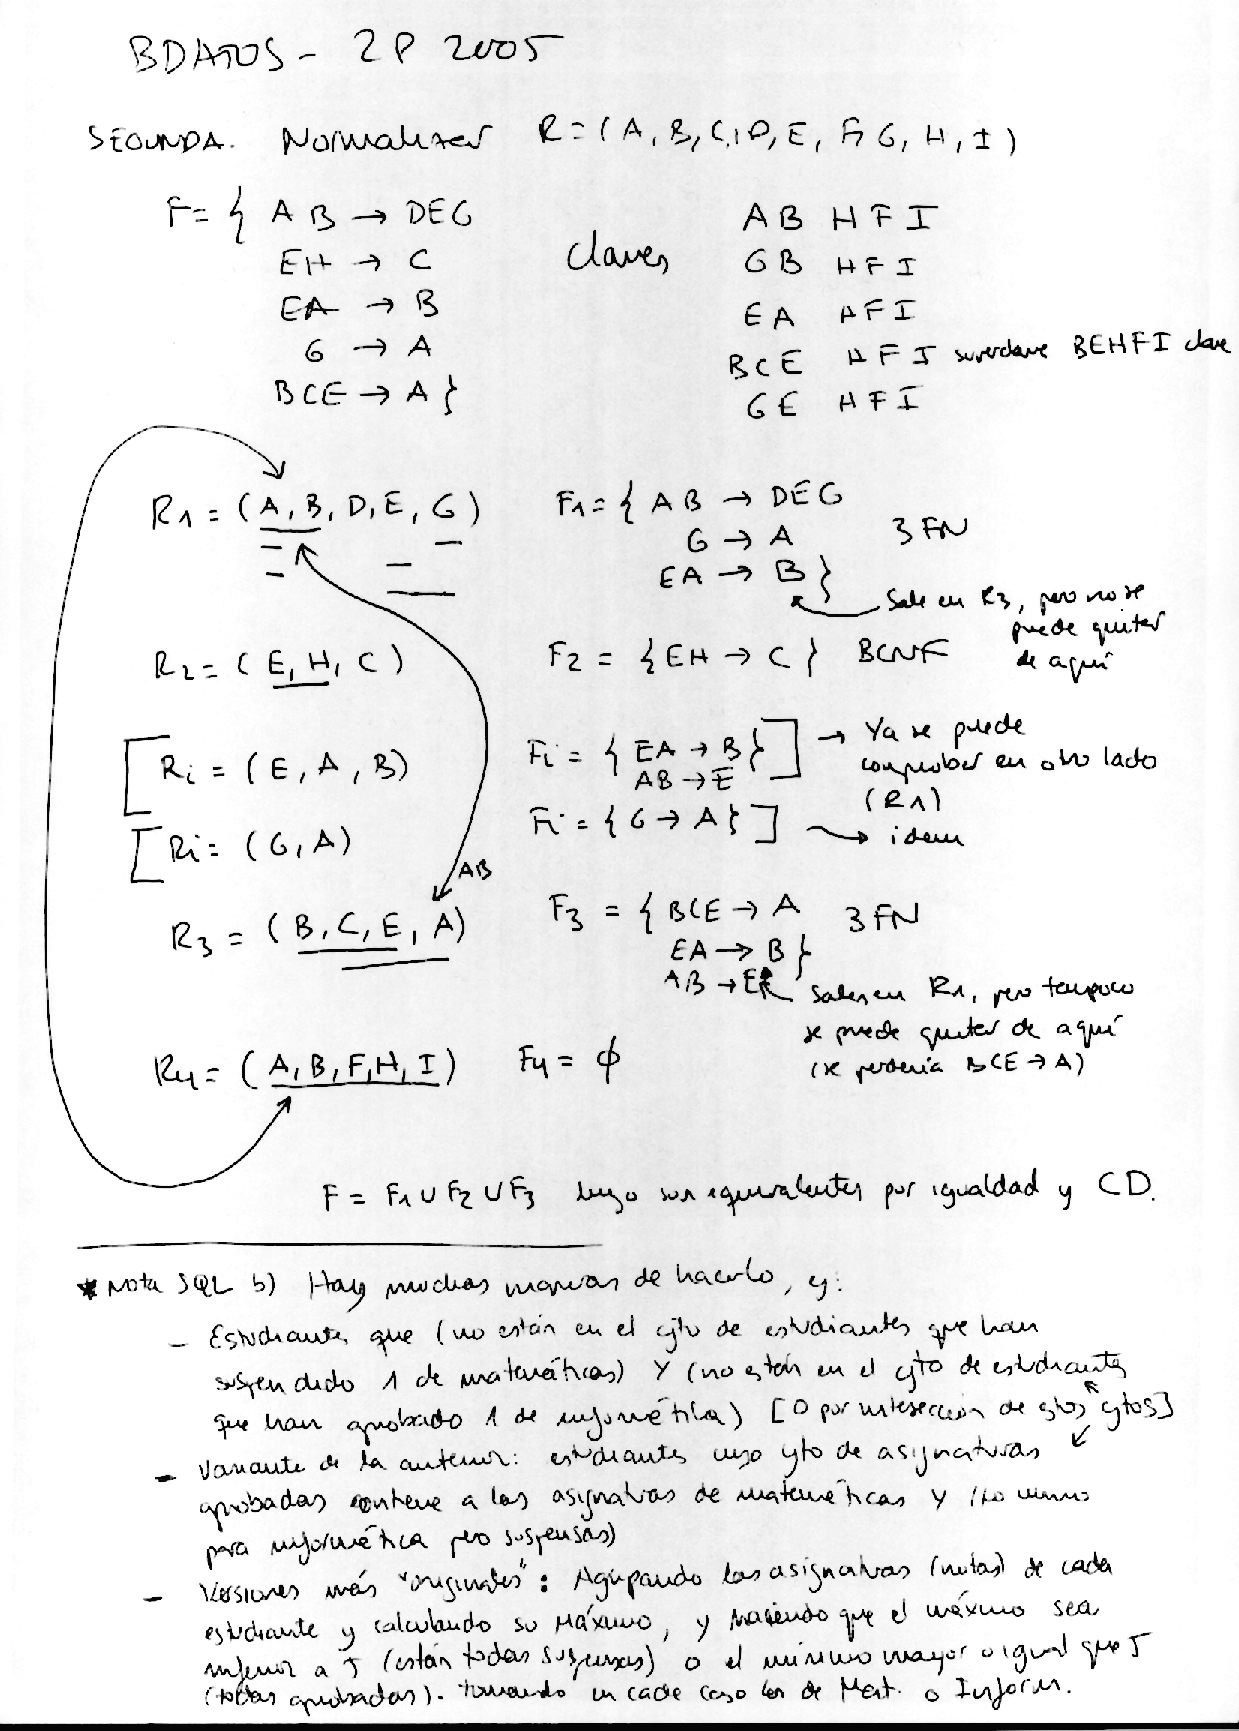 BDATOS - 2P 2005
SEGUNDA. Normalizar R=(A, B, C, D, E, F, G, H, I)
F= { AB → DEG
EH → C
EA → B
G → A
BCE → A }
Claves
AB HFI
GB HFI
EA HFI
BCE HFI superclave BEHFI clave
GE HFI
R1 = (A, B, D, E, G)
F1= { AB → DEG
G → A
EA → B }
3FN
Sale en R3, pero no se
puede quitar
de aquí
R2 = (E, H, C)
F2 = {EH → C} BCNF
[ Ri = (E, A, B)
Fi = { EA → B }
AB → E ]
→ Ya se puede
comprobar en otro lado
(R1)
[ Ri = (G, A)
Fi = { G → A } ] → idem
AB
R3 = (B, C, E, A)
F3 = { BCE → A
EA → B }
AB → E
3FN
Sale en R1, pero tampoco
se puede quitar de aquí
(se perdería BCE → A)
R4 = (A, B, F, H, I)
F4 = ϕ
F = F1 ∪ F2 ∪ F3 luego son equivalentes por igualdad y CD.
* Nota SQL b) Hay muchas maneras de hacerlo, ej:
- Estudiantes que (no están en el cjto de estudiantes que han
suspendido 1 de matemáticas) Y (no están en el cjto de estudiantes
que han aprobado 1 de informática) [O por intersección de estos cjtos]
- Variante de la anterior: estudiantes cuyo cjto de asignaturas
aprobadas contiene a las asignaturas de matemáticas Y (lo mismo
para informática pero suspensas)
- Versiones más "originales": Agrupando las asignaturas (notas) de cada
estudiante y calculando su máximo, y haciendo que el máximo sea
inferior a 5 (están todas suspensas) o el mínimo mayor o igual que 5
(todas aprobadas). tomando en cada caso las de Mat. o Inform.